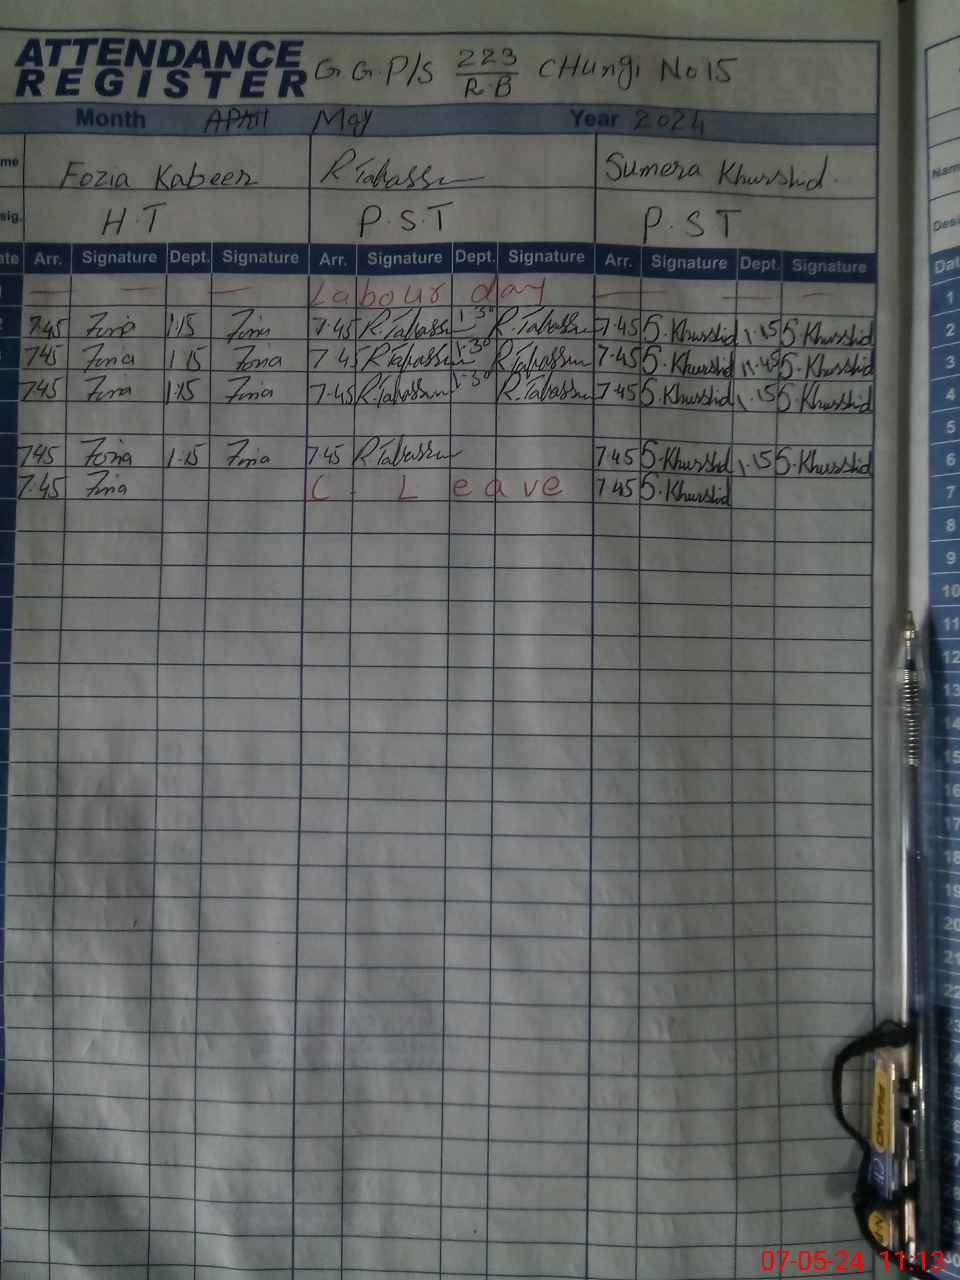 ATTENDANCE
REGISTER
G.G.P/S 223/R.B CHungi No 15
Month April May Year 2024
me Fozia Kabeer R Tabassum Sumera Khurshid.
sig. H.T P.S.T P.S.T
ate Arr. Signature Dept. Signature Arr. Signature Dept. Signature Arr. Signature Dept. Signature
Labour day
7.45 Fozia 1.15 Fozia 7.45 R.Tabassum 1.30 R.Tabassum 7.45 S.Khurshid 1.15 S.Khurshid
745 Fozia 1.15 Fozia 7.45 R.Tabassum 1.30 R.Tabassum 7.45 S.Khurshid 11.45 S.Khurshid
7.45 Fozia 1.15 Fozia 7.45 R.Tabassum 1.30 R.Tabassum 7.45 S.Khurshid 1.15 S.Khurshid
745 Fozia 1.15 Fozia 7.45 R.Tabassum 7.45 S.Khurshid 1.15 S.Khurshid
7.45 Fozia C. Leave 7.45 S.Khurshid
Nam
Desi
Dat
1
2
3
4
5
6
7
8
9
10
11
12
13
14
15
16
17
18
19
20
21
22
23
PIANO
07-05-24 11:13